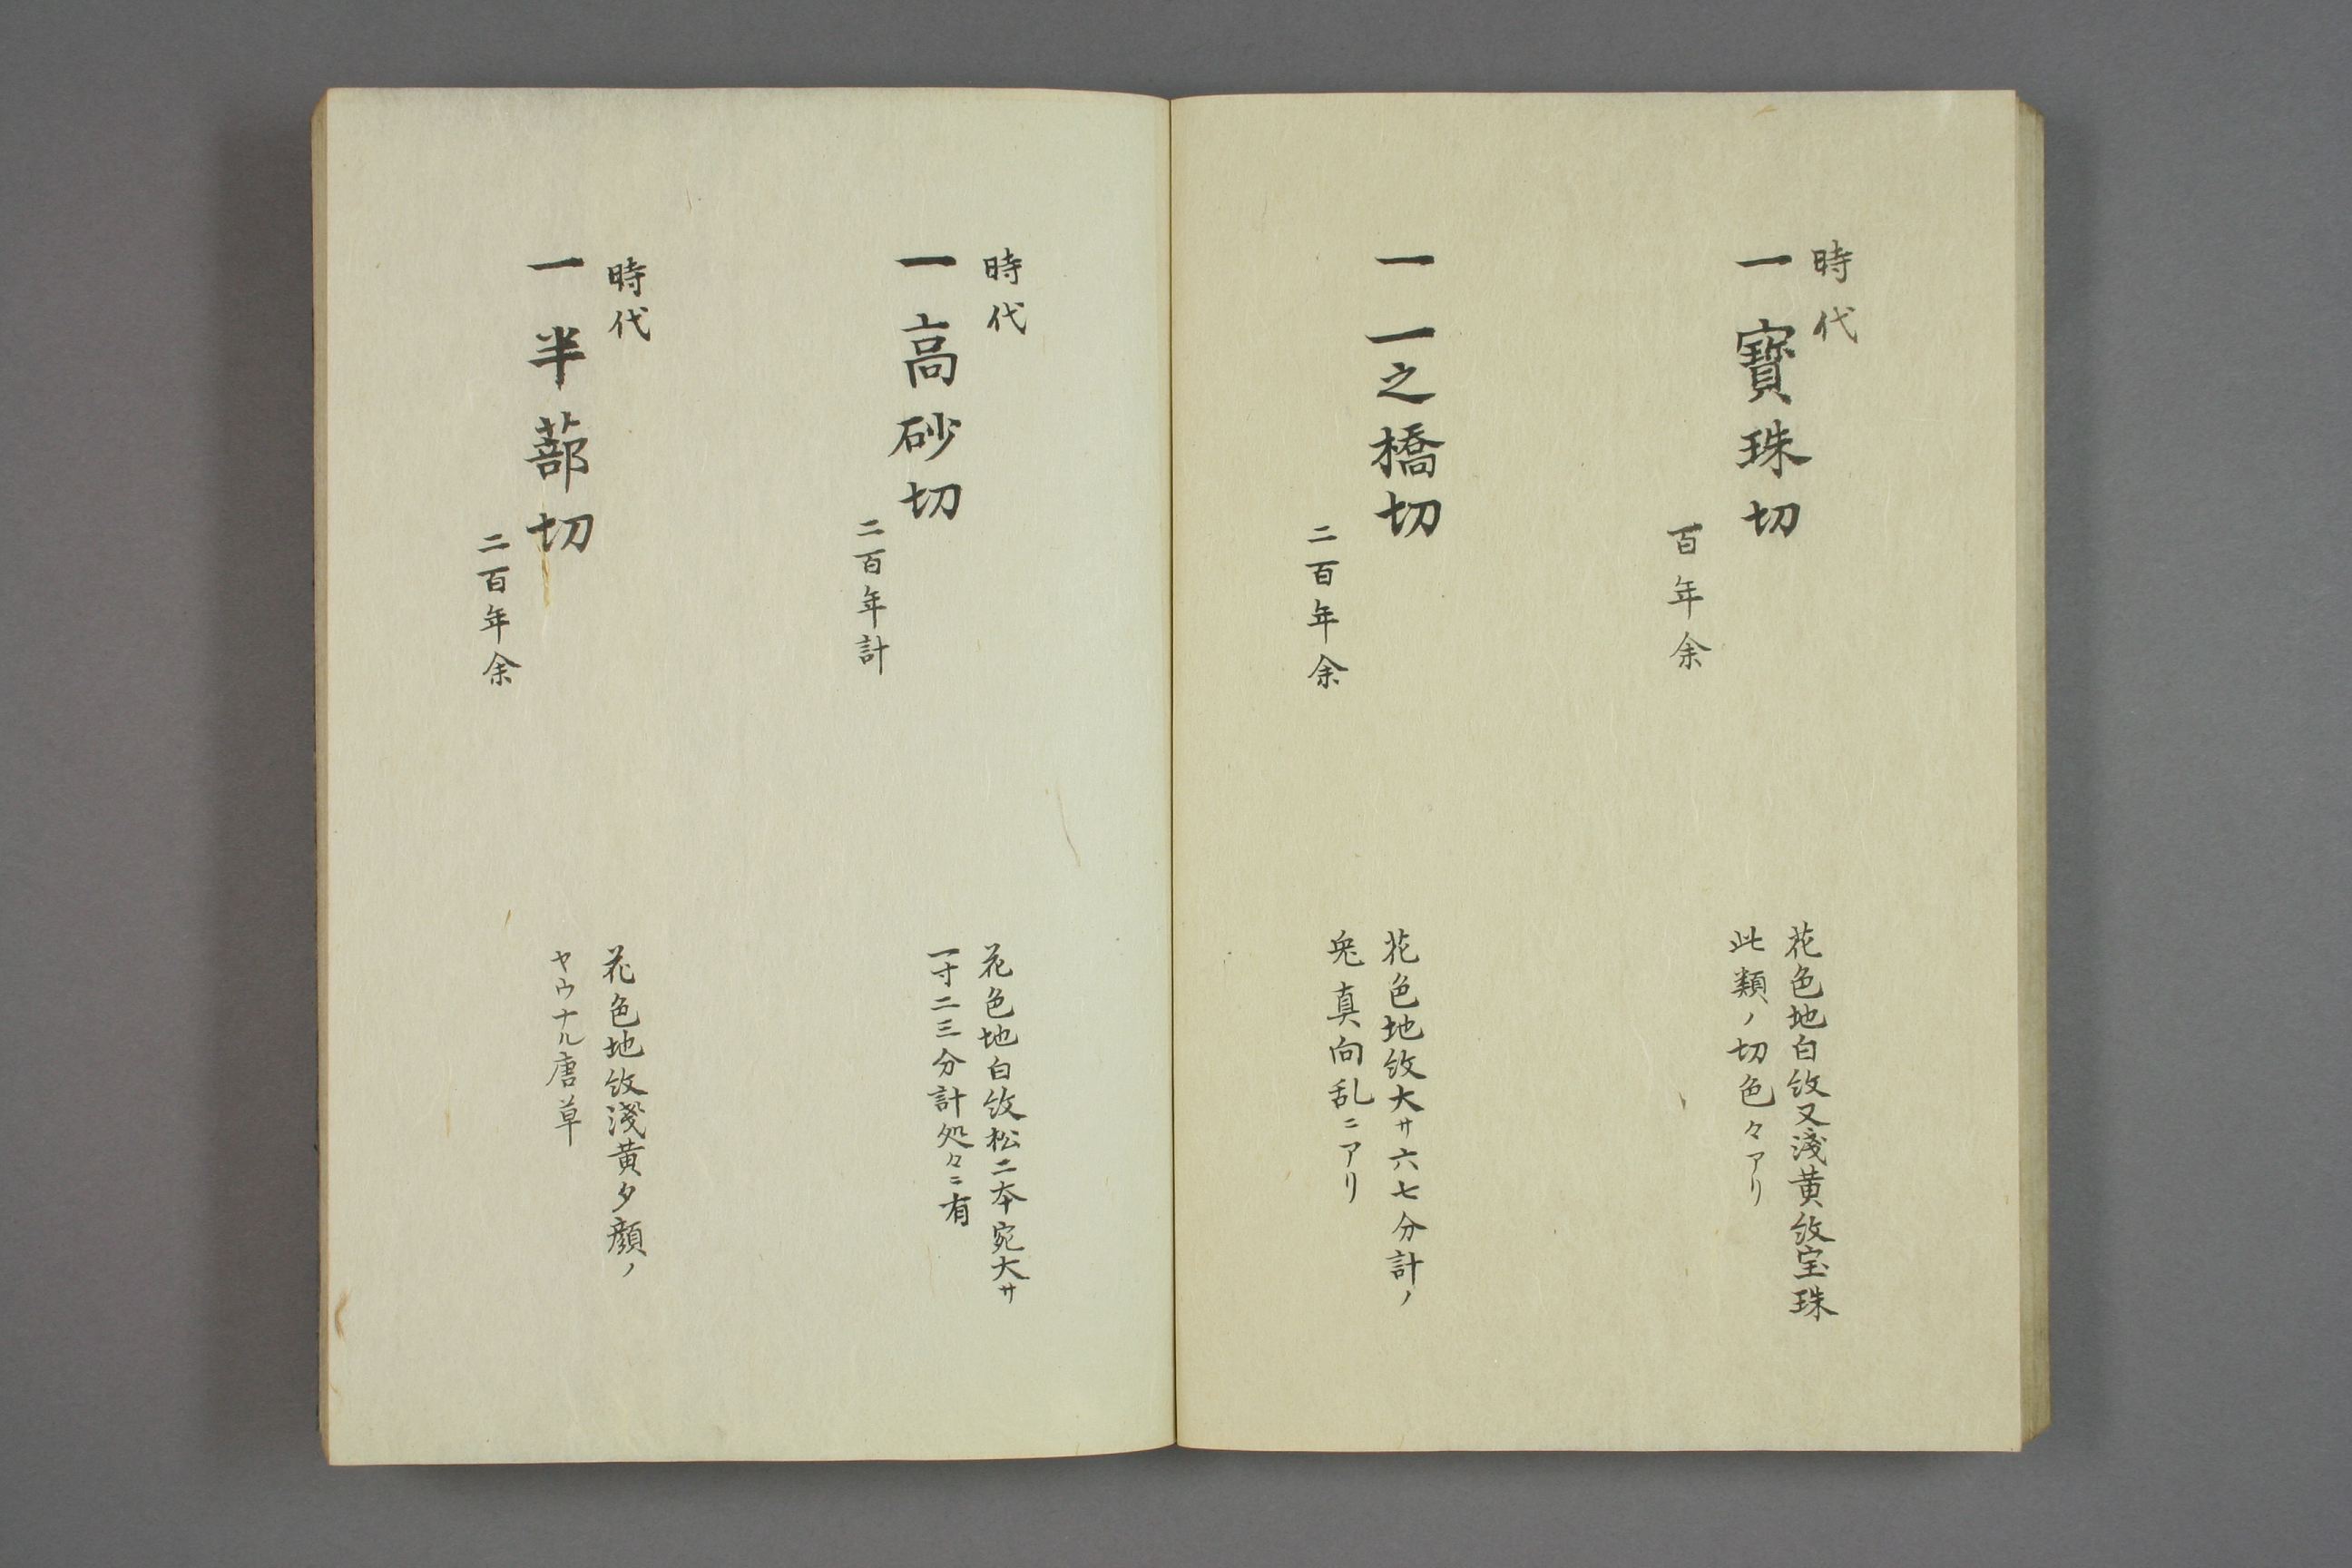 時代
一寳珠切
百年余
花色地白紋又淺黄紋宝珠
此類ノ切色々アリ
一一之橋切
二百年余
花色地紋大サ六七分計ノ
兎真向乱ニアリ
時代
一高砂切
二百年計
花色地白紋松二本宛大サ
一寸二三分計処々ニ有
時代
一半蔀切
二百年余
花色地紋淺黄夕顔ノ
ヤウナル唐草